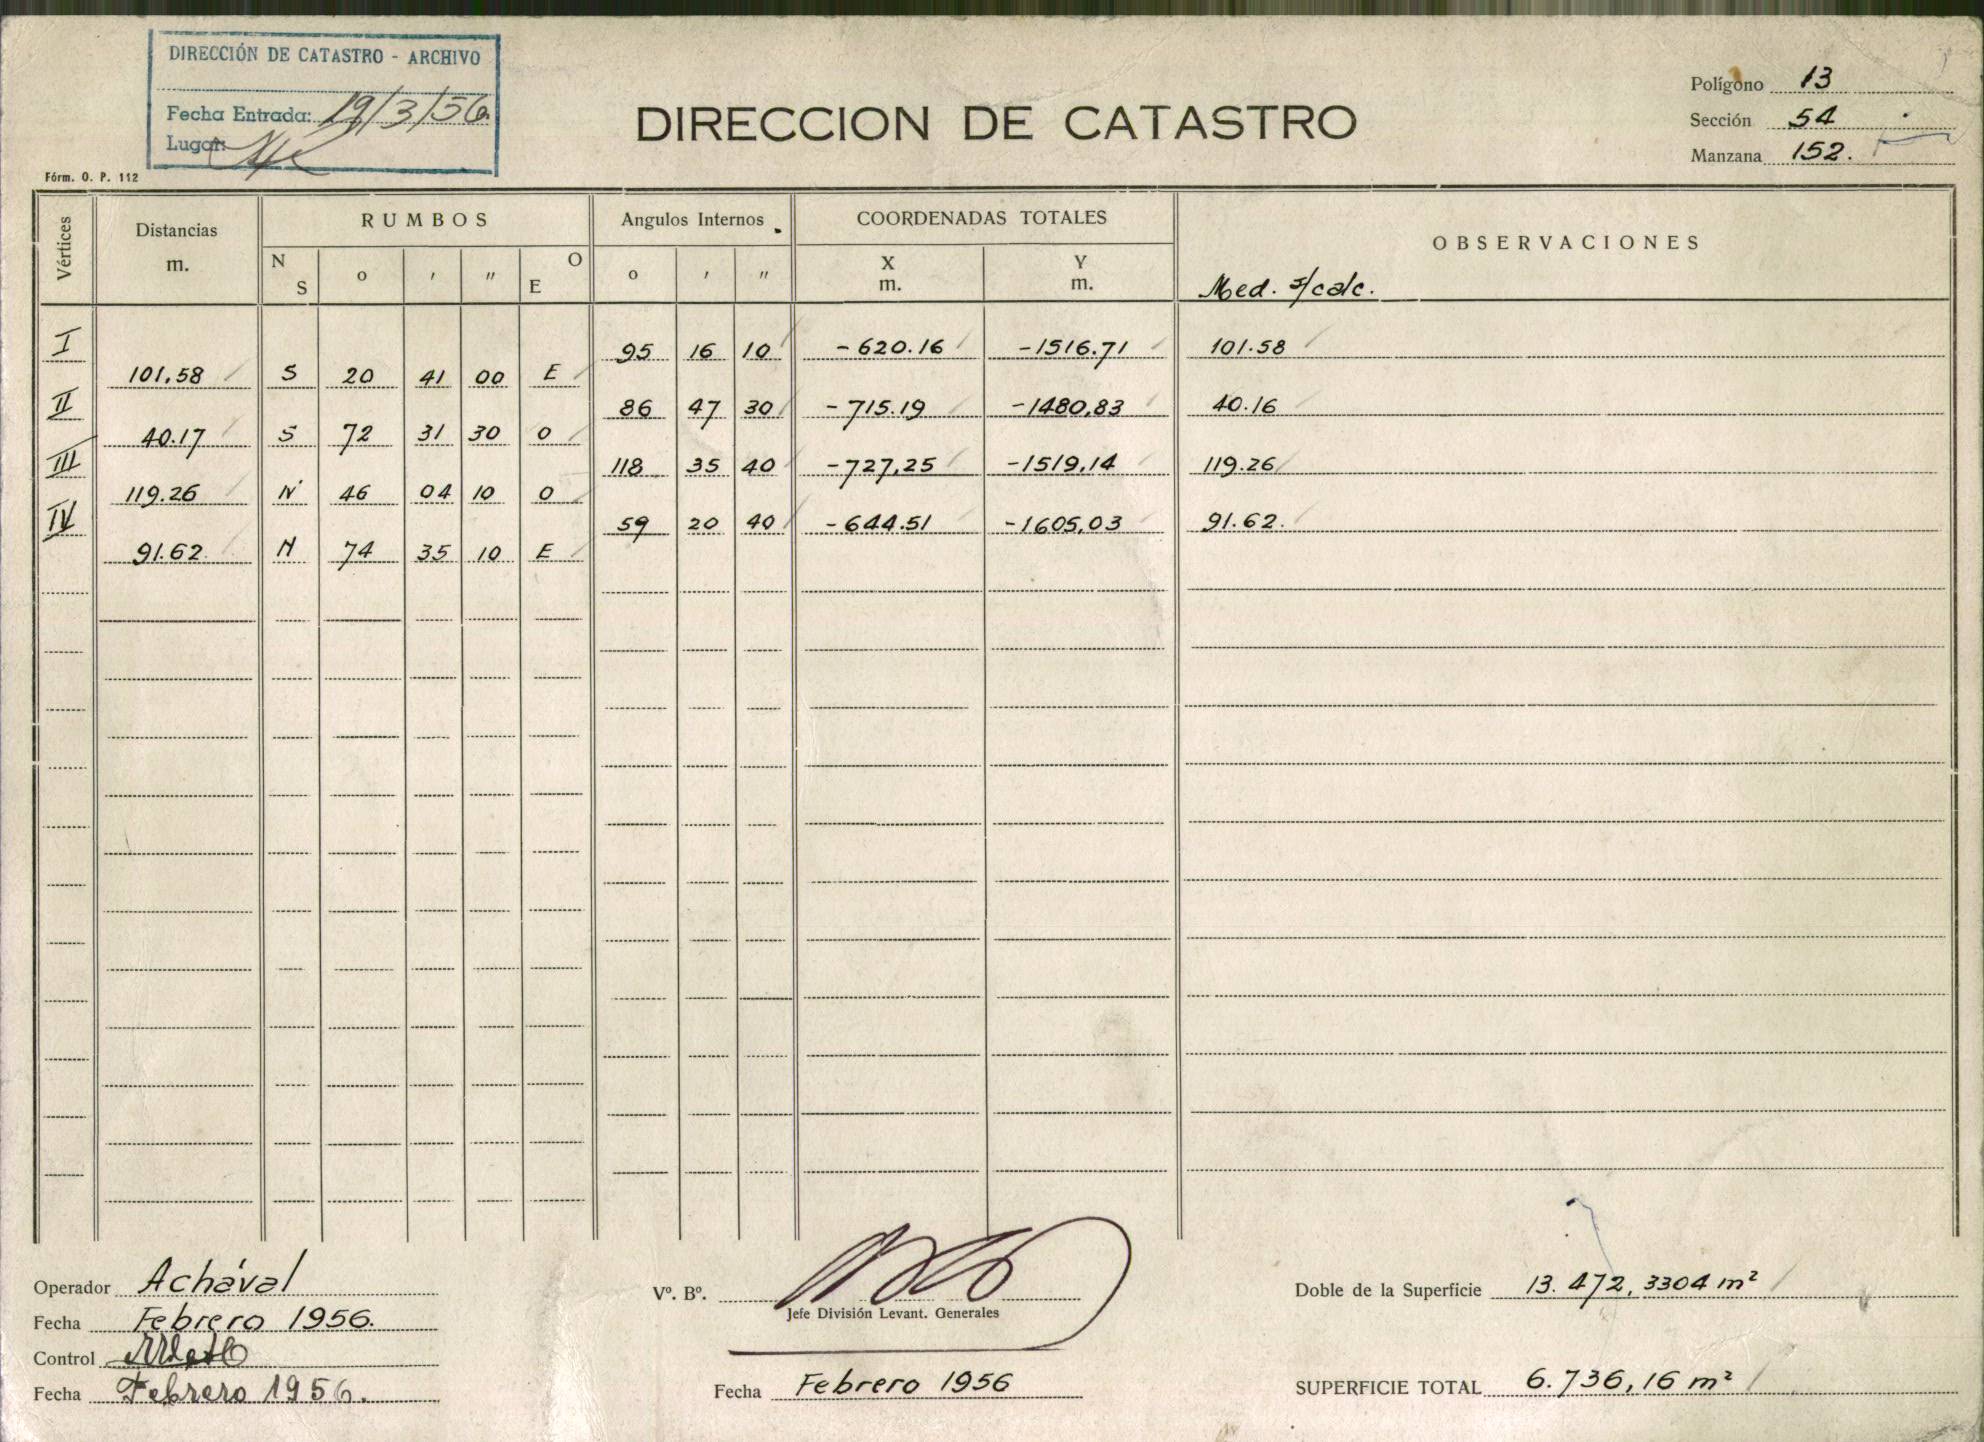 DIRECCIÓN DE CATASTRO - ARCHIVO
Fecha Entrada: 19/3/56.
Lugar:
DIRECCION DE CATASTRO
Polígono 13
Sección 54
Manzana 152.
Fórm. O. P. 112
Vértices
Distancias
m.
RUMBOS
N S ° ' " O E
Angulos Internos
° ' "
COORDENADAS TOTALES
X m.
Y m.
OBSERVACIONES
Med. s/calc.
I 95 16 10 -620.16 -1516.71 101.58
101.58 S 20 41 00 E
II 86 47 30 -715.19 -1480,83 40.16
40.17 S 72 31 30 O
III 118 35 40 -727,25 -1519,14 119.26
119.26 N 46 04 10 O
IV 59 20 40 -644.51 -1605,03 91.62.
91.62. N 74 35 10 E
Operador Achával
Fecha Febrero 1956.
Control
Fecha Febrero 1956.
Vº. Bº.
Jefe División Levant. Generales
Fecha Febrero 1956
Doble de la Superficie 13.472,3304 m²
SUPERFICIE TOTAL 6.736,16 m²